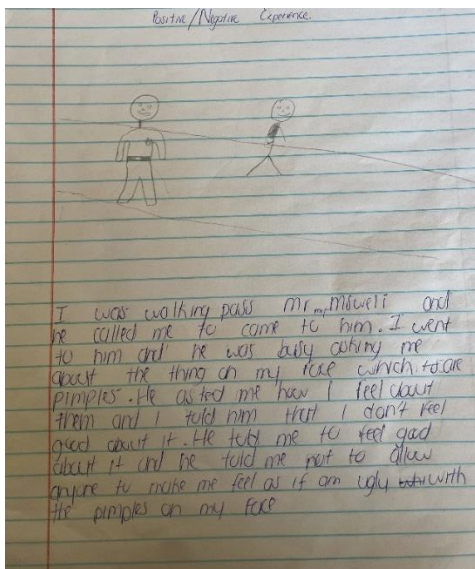 Positive/Negative Experience.
I was walking pass Mr Msweli and
he called me to come to him. I went
to him and he was busy asking me
about the thing on my face which are
pimples. He asked me how I feel about
them and told him that I don't feel
good about it. He told me to feel good
about it and he told me not to allow
anyone to make me feel as if am ugly with
the pimples on my face